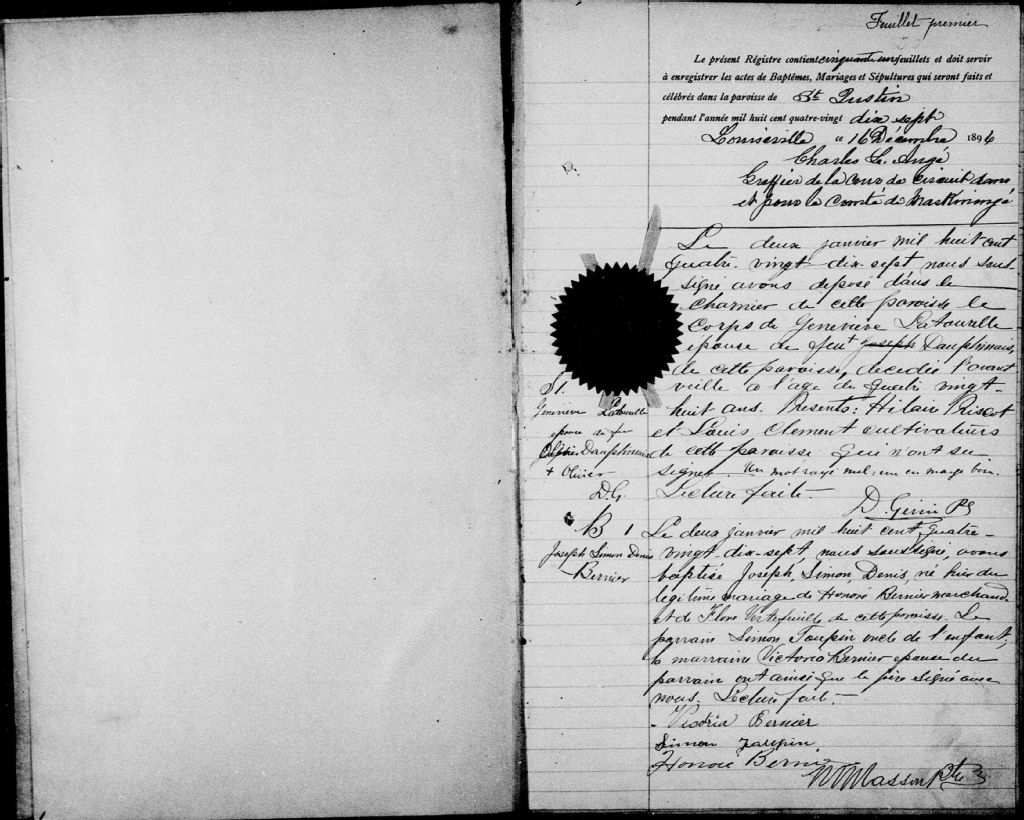 Feuillet premier
Le présent Régistre contient cinquante un feuillets et doit servir
à enregistrer les actes de Baptêmes, Mariages et Sépultures qui seront faits et
célébrés dans la paroisse de St Justin
pendant l'année mil huit cent quatre-vingt dix sept
Louiseville ce 16 Décembre 1896
Charles L. Augé
Greffier de la cour de circuit dans
et pour le Comté de Maskinongé
Le deux janvier mil huit cent
quatre-vingt dix-sept nous sous-
signé avons déposé dans le
charnier de cette paroisse le
corps de Geneviève Latourelle
épouse de feu Joseph Dauphinais,
de cette paroisse, décédée l'avant
veille a l'age de quatre vingt-
huit ans. Présents: Hilaire
et Louis Clement cultivateurs
de cette paroisse qui n'ont su
signer. Un mot rayé nul: un en marge bon.
Lecture faite.
D. Gérin Ptr
S 1.
Geneviève Latourelle
épouse de feu
Dauphinais
+ Olivier
D.G.
B 1
Joseph Simon Denis
Bernier
Le deux janvier mil huit cent quatre-
vingt-dix-sept, nous soussigné, avons
baptisé Joseph, Simon, Denis, né hier du
légitime mariage de Honoré Bernier marchand
et de Flore Vertefeuille de cette paroisse. Le
parrain Simon Toupin oncle de l'enfant;
la marraine Victoria Bernier épouse du
parrain ont ainsi que le père signé avec
nous. Lecture faite.
Victoria Bernier
Simon Toupin
Honoré Bernier
Masson Ptre